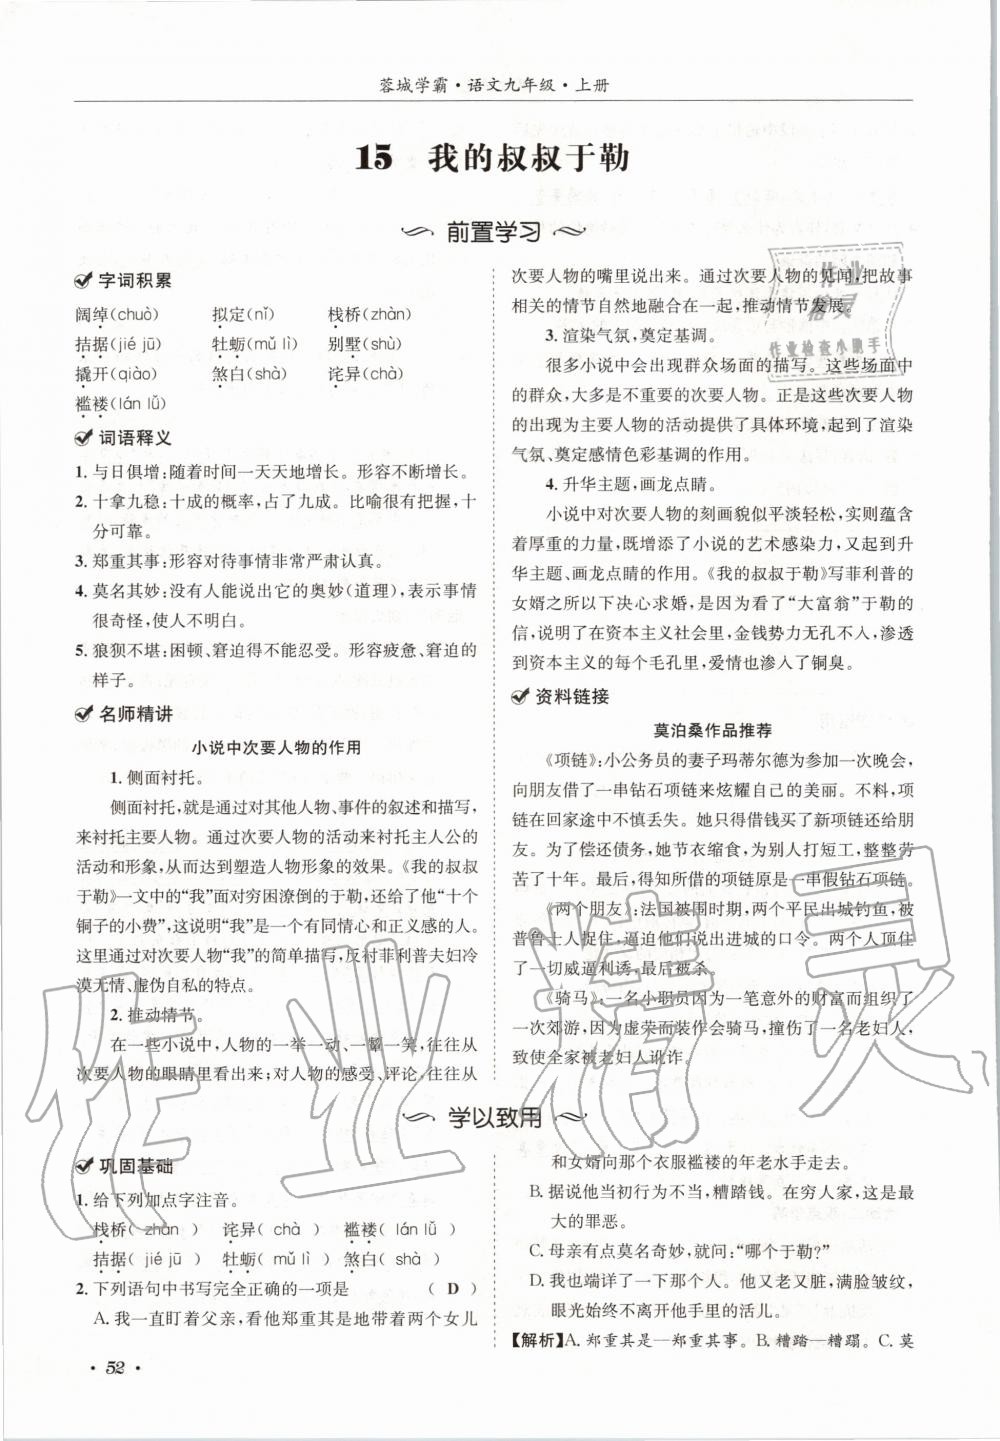 蓉城学霸·语文九年级·上册
15 我的叔叔于勒
前置学习
字词积累
阔绰(chuò) 拟定(nǐ) 栈桥(zhàn)
拮据(jié jū) 牡蛎(mǔ lì) 别墅(shù)
撬开(qiào) 煞白(shà) 诧异(chà)
褴褛(lán lǚ)
词语释义
1. 与日俱增:随着时间一天天地增长。形容不断增长。
2. 十拿九稳:十成的概率,占了九成。比喻很有把握,十
分可靠。
3. 郑重其事:形容对待事情非常严肃认真。
4. 莫名其妙:没有人能说出它的奥妙(道理),表示事情
很奇怪,使人不明白。
5. 狼狈不堪:困顿、窘迫得不能忍受。形容疲惫、窘迫的
样子。
名师精讲
小说中次要人物的作用
1. 侧面衬托。
侧面衬托,就是通过对其他人物、事件的叙述和描写,
来衬托主要人物。通过次要人物的活动来衬托主人公的
活动和形象,从而达到塑造人物形象的效果。《我的叔叔
于勒》一文中的“我”面对穷困潦倒的于勒,还给了他“十个
铜子的小费”,这说明“我”是一个有同情心和正义感的人。
这里通过对次要人物“我”的简单描写,反衬菲利普夫妇冷
漠无情、虚伪自私的特点。
2. 推动情节。
在一些小说中,人物的一举一动、一颦一笑,往往从
次要人物的眼睛里看出来;对人物的感受、评论,往往从
次要人物的嘴里说出来。通过次要人物的见闻,把故事
相关的情节自然地融合在一起,推动情节发展。
3. 渲染气氛,奠定基调。
很多小说中会出现群众场面的描写。这些场面中
的群众,大多是不重要的次要人物。正是这些次要人物
的出现为主要人物的活动提供了具体环境,起到了渲染
气氛、奠定感情色彩基调的作用。
4. 升华主题,画龙点睛。
小说中对次要人物的刻画貌似平淡轻松,实则蕴含
着厚重的力量,既增添了小说的艺术感染力,又起到升
华主题、画龙点睛的作用。《我的叔叔于勒》写菲利普的
女婿之所以下决心求婚,是因为看了“大富翁”于勒的
信,说明了在资本主义社会里,金钱势力无孔不入,渗透
到资本主义的每个毛孔里,爱情也渗入了铜臭。
资料链接
莫泊桑作品推荐
《项链》:小公务员的妻子玛蒂尔德为参加一次晚会,
向朋友借了一串钻石项链来炫耀自己的美丽。不料,项
链在回家途中不慎丢失。她只得借钱买了新项链还给朋
友。为了偿还债务,她节衣缩食,为别人打短工,整整劳
苦了十年。最后,得知所借的项链原是一串假钻石项链。
《两个朋友》:法国被围时期,两个平民出城钓鱼,被
普鲁士人捉住,逼迫他们说出进城的口令。两个人经历
了一切威逼利诱,最后被杀。
《骑马》:一名小职员因为一笔意外的财富而组织了
一次郊游,因为虚荣而装作会骑马,撞伤了一名老妇人,
致使全家被老妇人讹诈。
学以致用
巩固基础
1. 给下列加点字注音。
栈桥( zhàn ) 诧异( chà ) 褴褛( lán lǚ )
拮据( jié jū ) 牡蛎( mǔ lì ) 煞白( shà )
2. 下列语句中书写完全正确的一项是 ( D )
A. 我一直盯着父亲,看他郑重其是地带着两个女儿
和女婿向那个衣服褴褛的年老水手走去。
B. 据说他当初行为不当,糟踏钱。在穷人家,这是最
大的罪恶。
C. 母亲有点莫名奇妙,就问:“哪个于勒?”
D. 我也端详了一下那个人。他又老又脏,满脸皱纹,
眼光始终不离开他手里的活儿。
【解析】A. 郑重其是—郑重其事。B. 糟踏—糟蹋。C. 莫
· 52 ·
作业精灵
作业
精灵
作业检查小助手